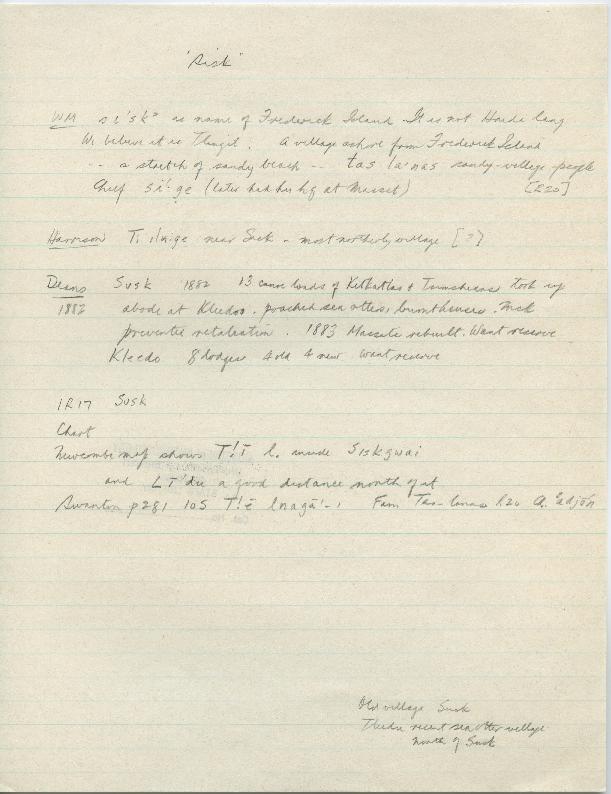 'Sisk'
WM si'sk° is name of Frederick Island. It is not Haida lang
We believe it is Tlingit. A village ashore from Frederick Island
-- a stretch of sandy beach -- tas la'nas sandy-village-people
Chief si'ge (later had his hq at Masset) [R20]
Harrison near Susk - most northerly village [?]
Deans Susk 1882 13 canoe loads of Kitkatlas & Tsimsheans took up
1882 abode at Kleedoo. poached sea otters, burnt houses.
prevented retaliation. 1883 Massets rebuilt. Want reserve
Kleedo 8 lodges 4 old 4 new Want reserve
IR17 Susk
Chart
Newcombe map shows T!ī l. inside Siskgwai
and a good distance north of it
Swanton p281 105 T!ē lnagā'-i Fam Tas-lanas R20
Old village Susk
Tledu recent sea otter village
north of Susk